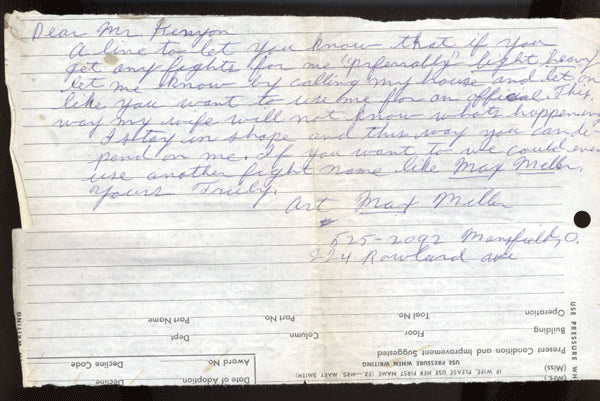 Dear Mr Kenyon
A line to let you know that if you
get any fights for me "preferrably" light heavy
let me know by calling my house and let on
like you want to use me for an official. This
way my wife will not know whats happening
I stay in shape and this way you can de-
pend on me. If you want to we could even
use another fight name like Max Miller.
Yours Truly.
Art Max Miller
525-2092 Mansfield, O.
224 Rowland ave
USE PRESSURE WH
WRITING
Operation
Tool No.
Part No.
Part Name
Building
Floor
Column
Dept.
Present Condition and Improvement Suggested
USE PRESSURE WHEN WRITING
IF WIFE, PLEASE USE HER FIRST NAME (EX.—MRS. MARY SMITH)
(Miss)
(Mrs.)
Award No.
Date of Adoption
Decline Code
Decline Date